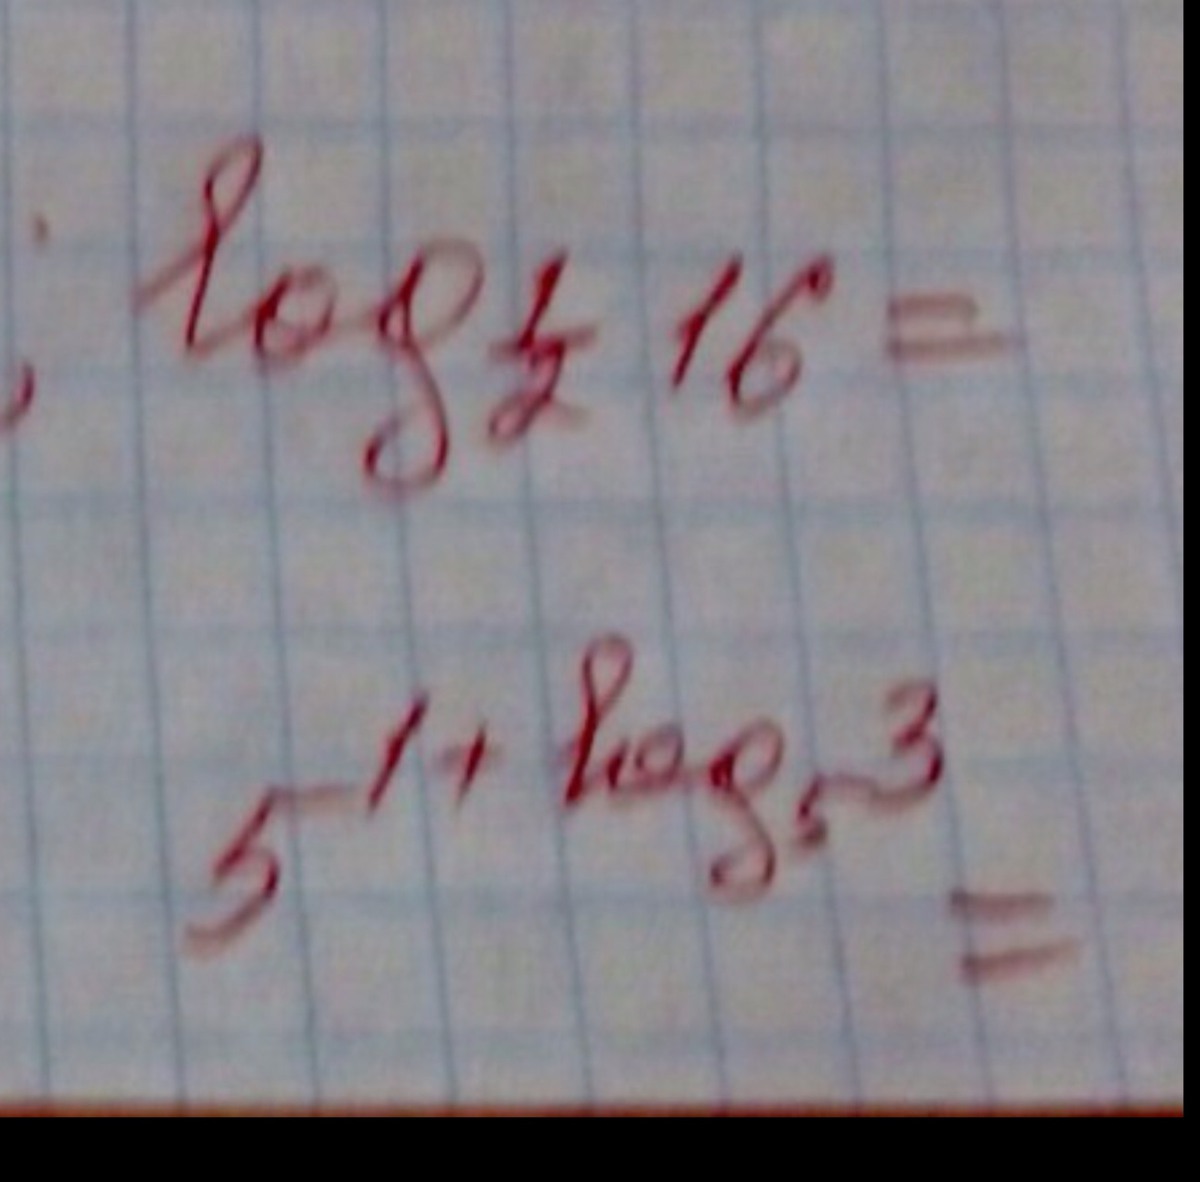 ; log½ 16 =
5^(1 + log₅ 3) =